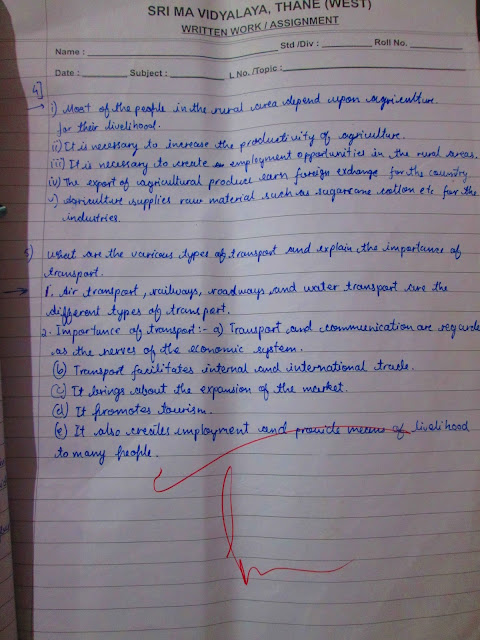 SRI MA VIDYALAYA, THANE (WEST)
WRITTEN WORK / ASSIGNMENT
Name : Std /Div : Roll No.
Date : Subject : L No. /Topic :
4]
i) Most of the people in the rural area depend upon agriculture
for their livelihood.
ii) It is necessary to increase the productivity of agriculture.
iii) It is necessary to create employment opportunities in the rural areas.
iv) The export of agricultural product earn foreign exchange for the country
v) Agriculture supplies raw material such as sugarcane cotton etc for the
industries.
5) What are the various types of transport and explain the importance of
transport.
1. Air transport, railways, roadways and water transport are the
different types of transport.
2. Importance of transport:- a) Transport and communication are regarde
as the nerves of the economic system.
(b) Transport facilitates internal and international trade.
(c) It brings about the expansion of the market.
(d) It promotes tourism.
(e) It also creates employment and provide means of livelihood
to many people.